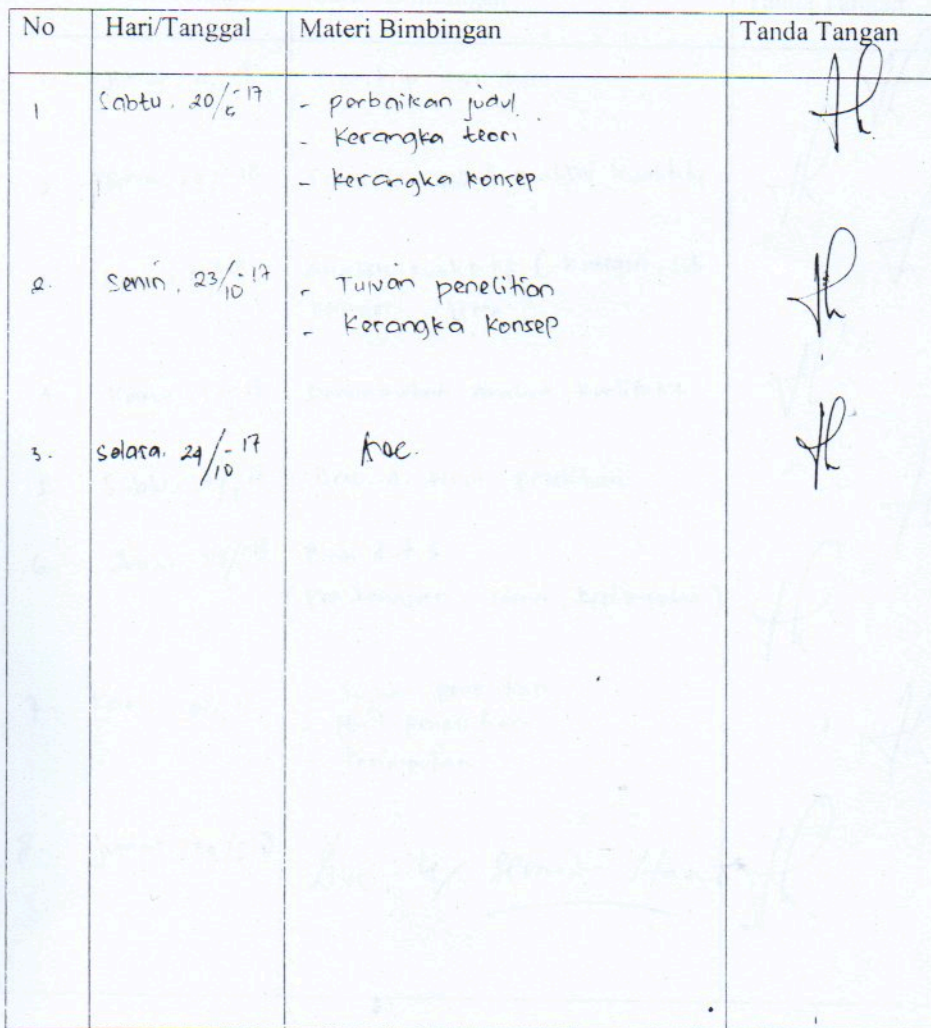 No Hari/Tanggal Materi Bimbingan Tanda Tangan
1 Sabtu, 20/5-17 - perbaikan judul
- Kerangka teori
- Kerangka konsep
2. Senin, 23/10-17 - Tujuan penelitian
- Kerangka konsep
3. Selasa, 24/10-17 Acc.